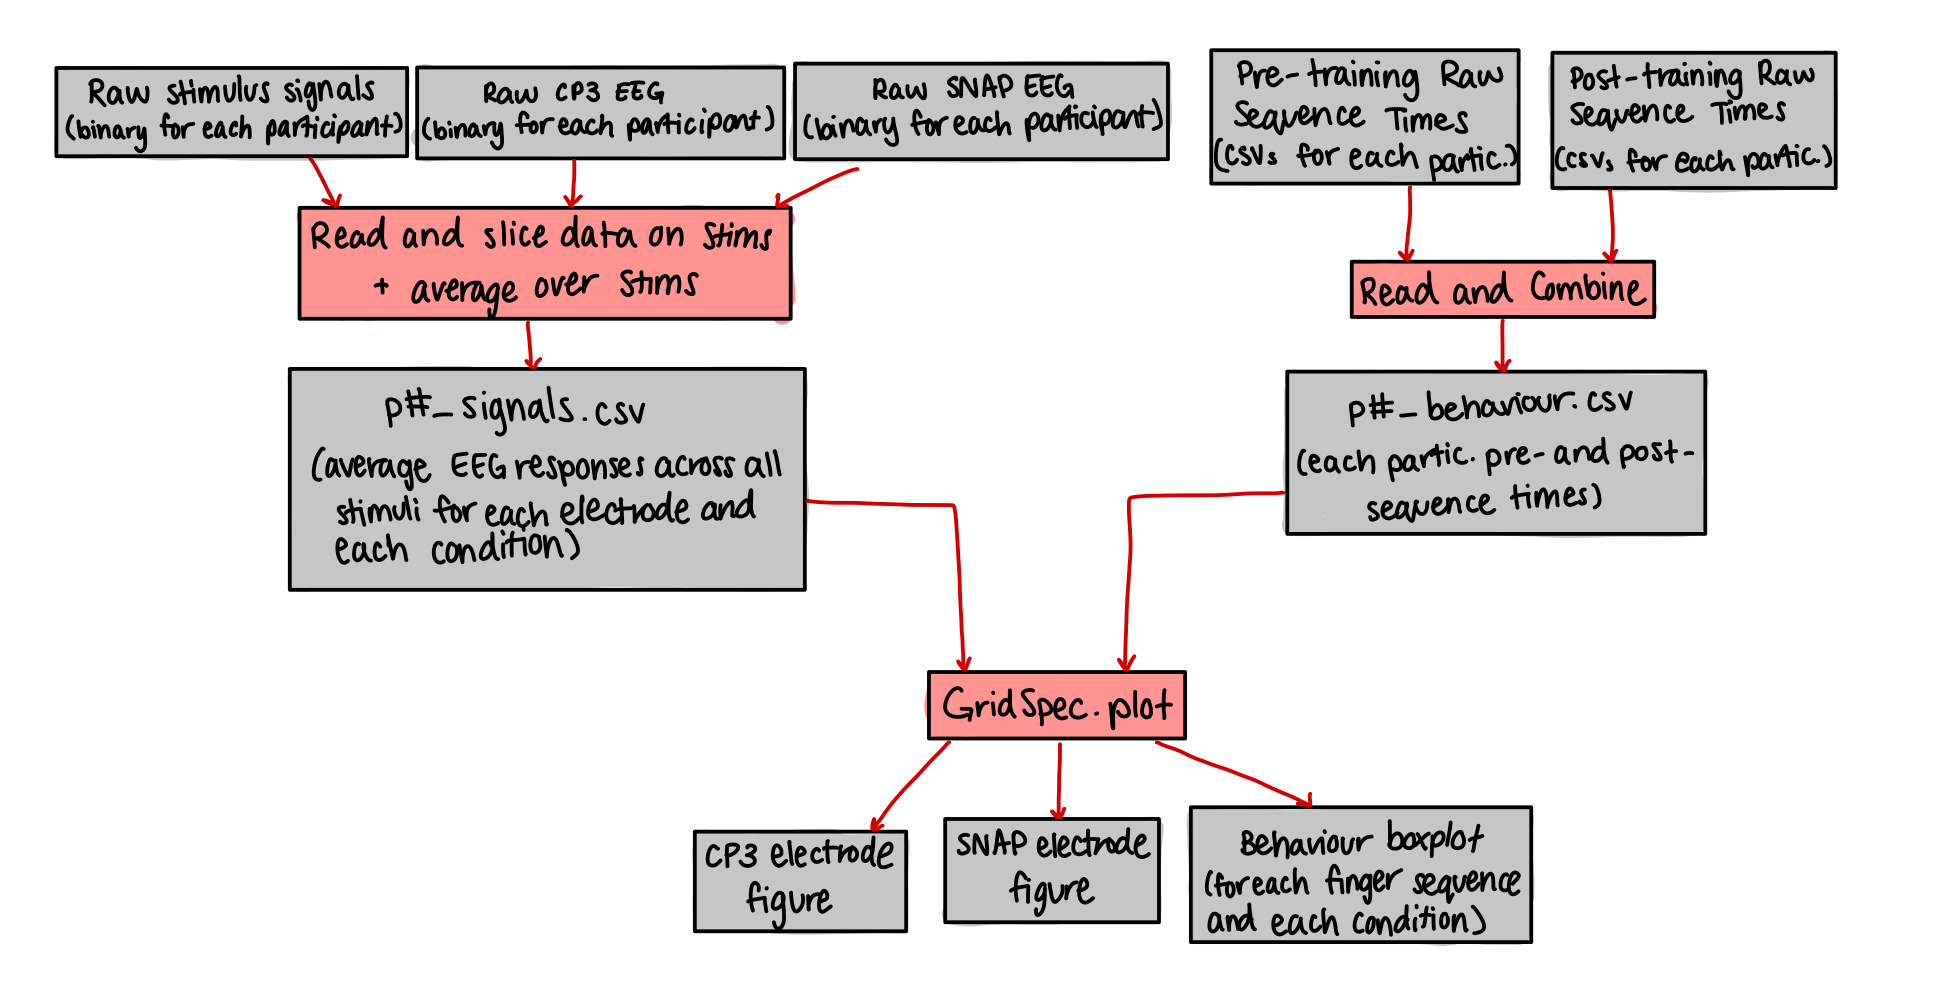 Raw stimulus signals
(binary for each participant)
Raw CP3 EEG
(binary for each participant)
Raw SNAP EEG
(binary for each participant)
Pre-training Raw
Sequence Times
(csvs for each partic.)
Post-training Raw
Sequence Times
(csvs for each partic.)
Read and slice data on stims
+ average over stims
Read and Combine
p#_signals.csv
(average EEG responses across all
stimuli for each electrode and
each condition)
p#_behaviour.csv
(each partic. pre- and post-
sequence times)
GridSpec.plot
CP3 electrode
figure
SNAP electrode
figure
Behaviour boxplot
(for each finger sequence
and each condition)